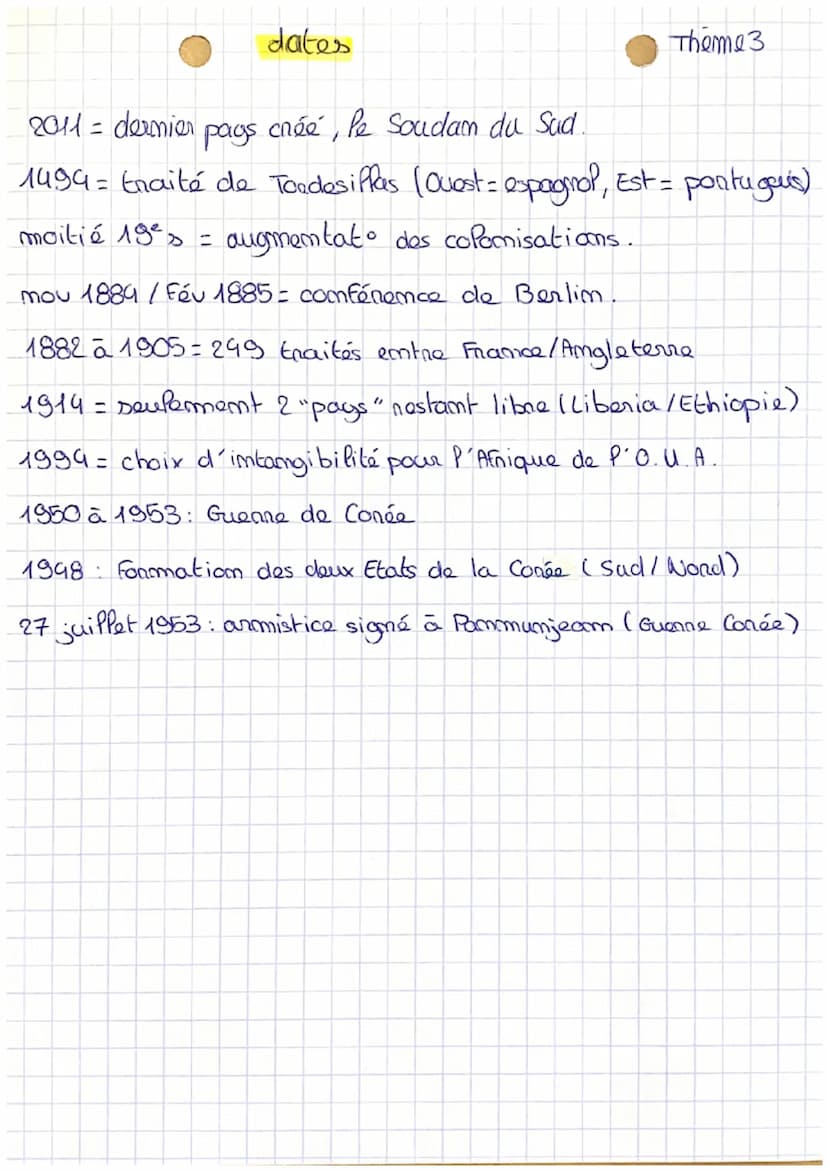 dates
Thème 3
2011 = dernier pays créé, le Soudan du Sud.
1494 = traité de Tordesillas (Ouest = espagnol, Est = portugais)
moitié 19e s = augmentat° des colonisations.
nov 1884 / Fév 1885 = conférence de Berlin.
1882 à 1905 = 249 traités entre France/Angleterre
1914 = seulement 2 "pays" restant libre (Liberia / Ethiopie)
1994 = choix d'intangibilité pour l'Afrique de l'O.U.A.
1950 à 1953 : Guerre de Corée
1948 : Formation des deux Etats de la Corée (Sud / Nord)
27 juillet 1953 : armistice signé à Panmunjeom (Guerre Corée)